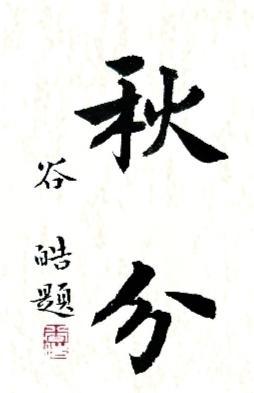 秋分
谷皓题